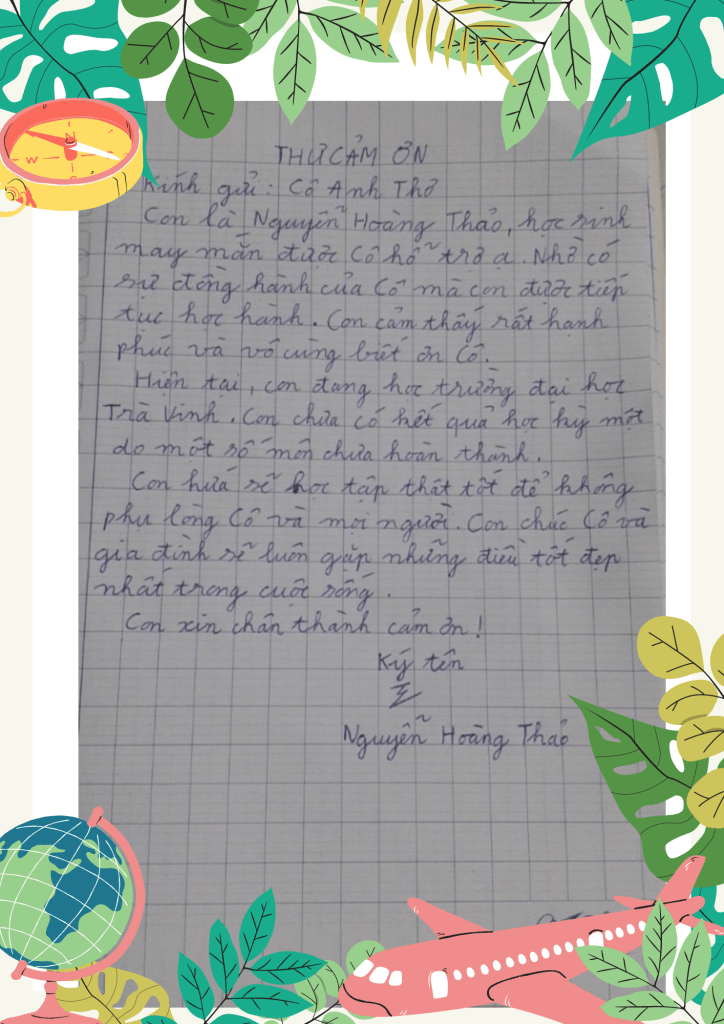 THƯ CẢM ƠN
Kính gửi: Cô Anh Thơ
Con là Nguyễn Hoàng Thảo, học sinh
may mắn được Cô hỗ trợ ạ. Nhờ có
sự đồng hành của Cô mà con được tiếp
tục học hành. Con cảm thấy rất hạnh
phúc và vô cùng biết ơn Cô.
Hiện tại, con đang học trường đại học
Trà Vinh. Con chưa có kết quả học kỳ một
do một số môn chưa hoàn thành.
Con hứa sẽ học tập thật tốt để không
phụ lòng Cô và mọi người. Con chúc Cô và
gia đình sẽ luôn gặp những điều tốt đẹp
nhất trong cuộc sống.
Con xin chân thành cảm ơn!
Ký tên
Nguyễn Hoàng Thảo
N
W
S